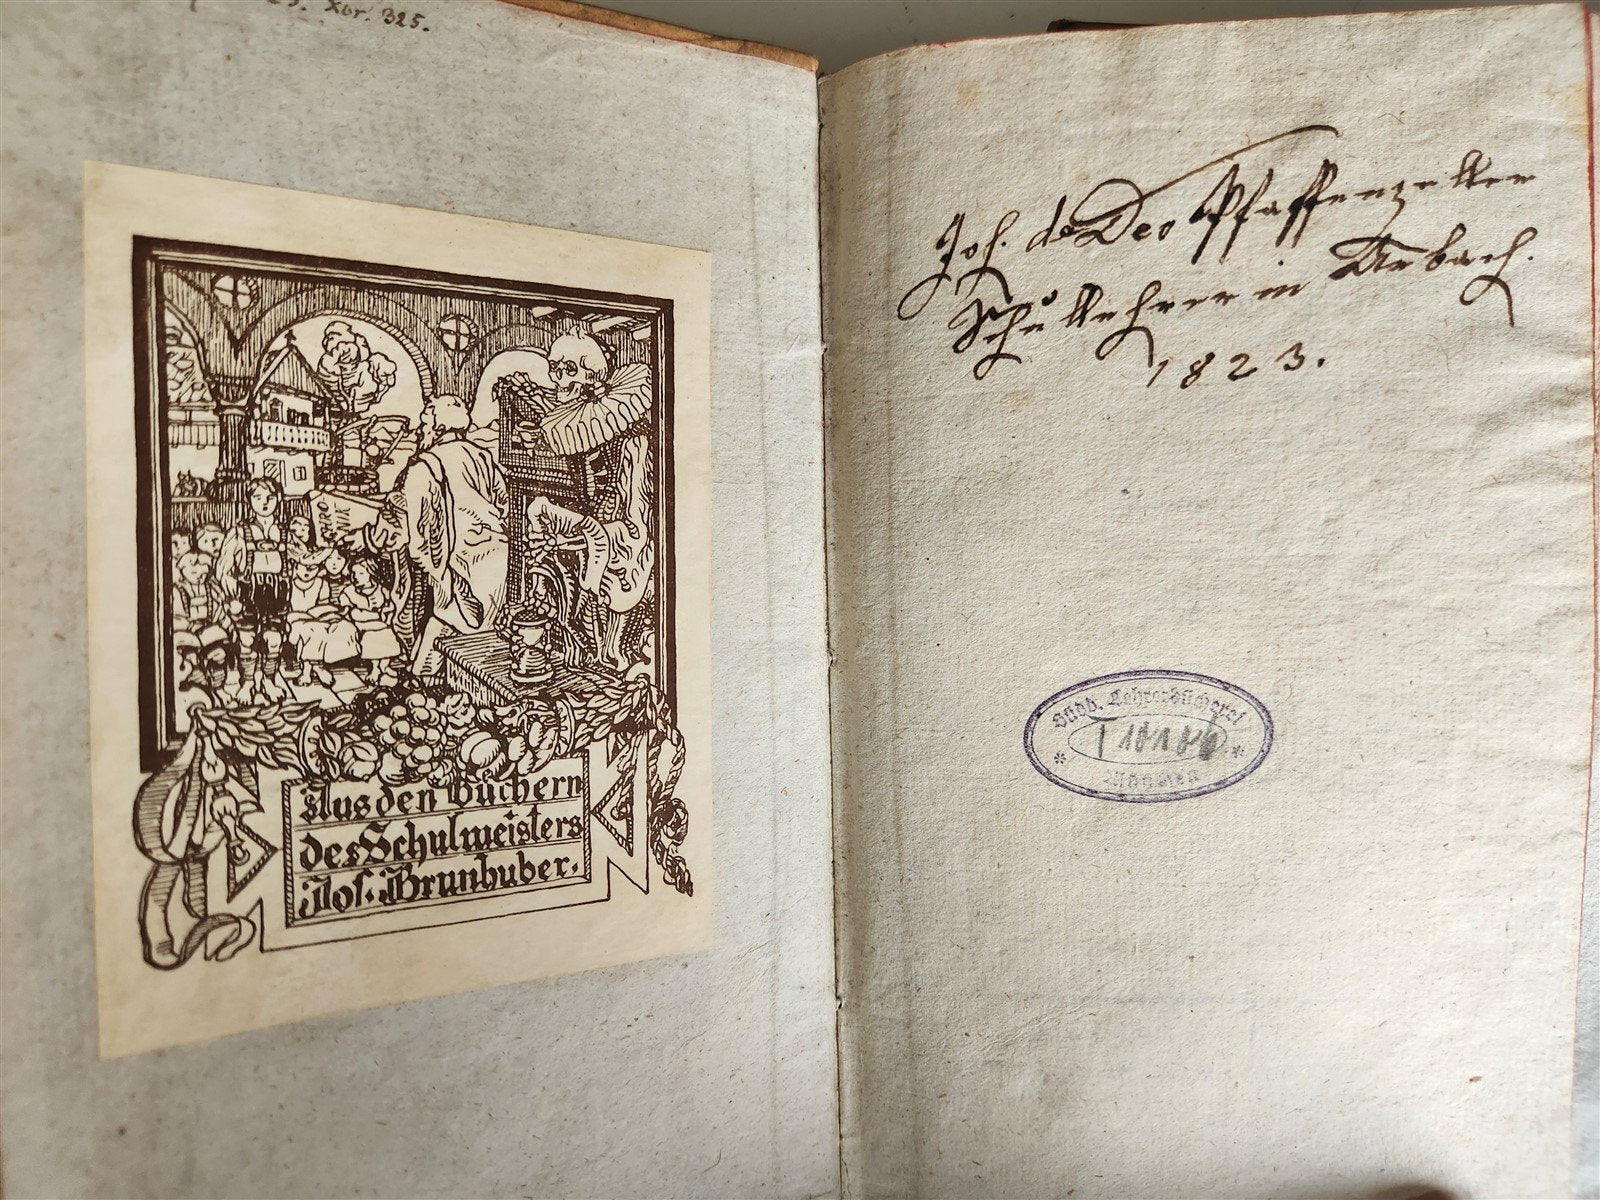 Xbr. 325.
PRO
VITA
Aus den Büchern
des Schulmeisters
Jos. Brunhuber.
Joh. de Deo Pfaffenzeller
Schullehrer in Aurbach.
1823.
Südd. Lehrerbücherei
München